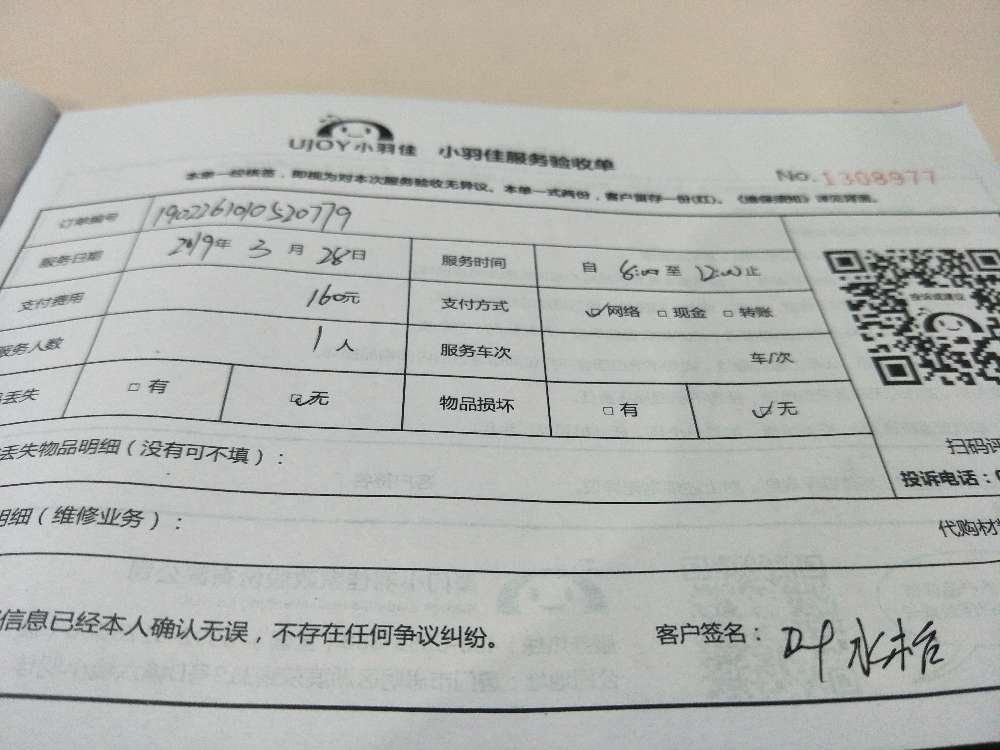 UJOY小羽佳 小羽佳服务验收单
No. 1308977
本单一经核签，即视为对本次服务验收无异议。本单一式两份，客户留存一份(红)。《维保须知》详见背面。
订单编号 190226101052079
服务日期 2019年 3 月 28日 服务时间 自 8:00 至 12:00 止
支付费用 160元 支付方式 ☑网络 □ 现金 □ 转账
服务人数 1 人 服务车次 车/次
丢失 □ 有 ☑无 物品损坏 □ 有 ☑ 无
投诉或建议
丢失物品明细（没有可不填）：
扫码评
投诉电话：
明细（维修业务）：
代购材
信息已经本人确认无误，不存在任何争议纠纷。
客户签名：叶永